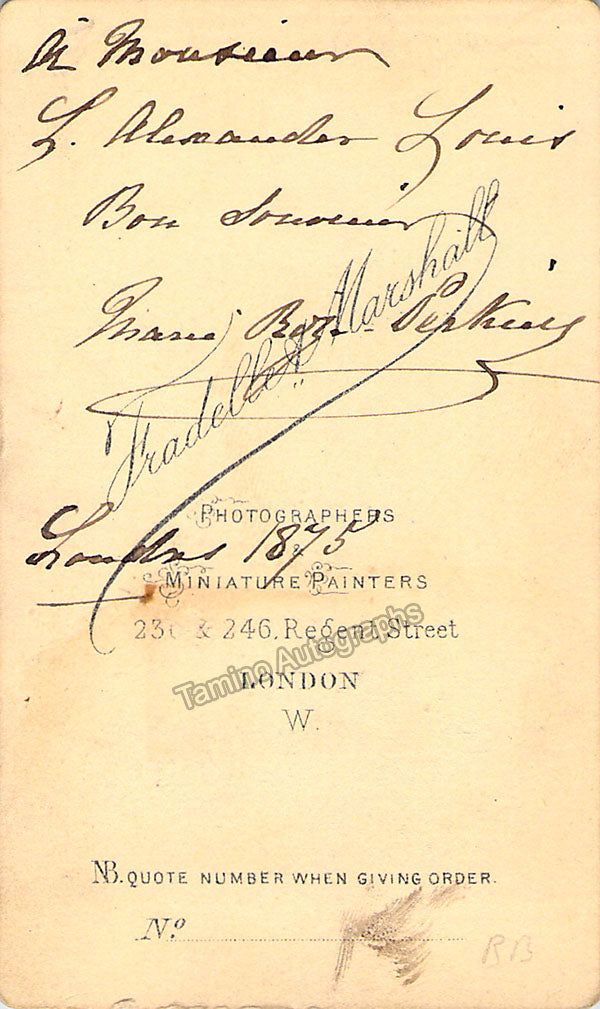 À Monsieur
L. Alexander Louis
Bon Souvenir
Marie Roze-Perkins
Fradelle & Marshall
PHOTOGRAPHERS
Londres 1875
MINIATURE PAINTERS
& 246, Regent Street
LONDON
W.
Tamino Autographs
NB. QUOTE NUMBER WHEN GIVING ORDER.
No.
RB